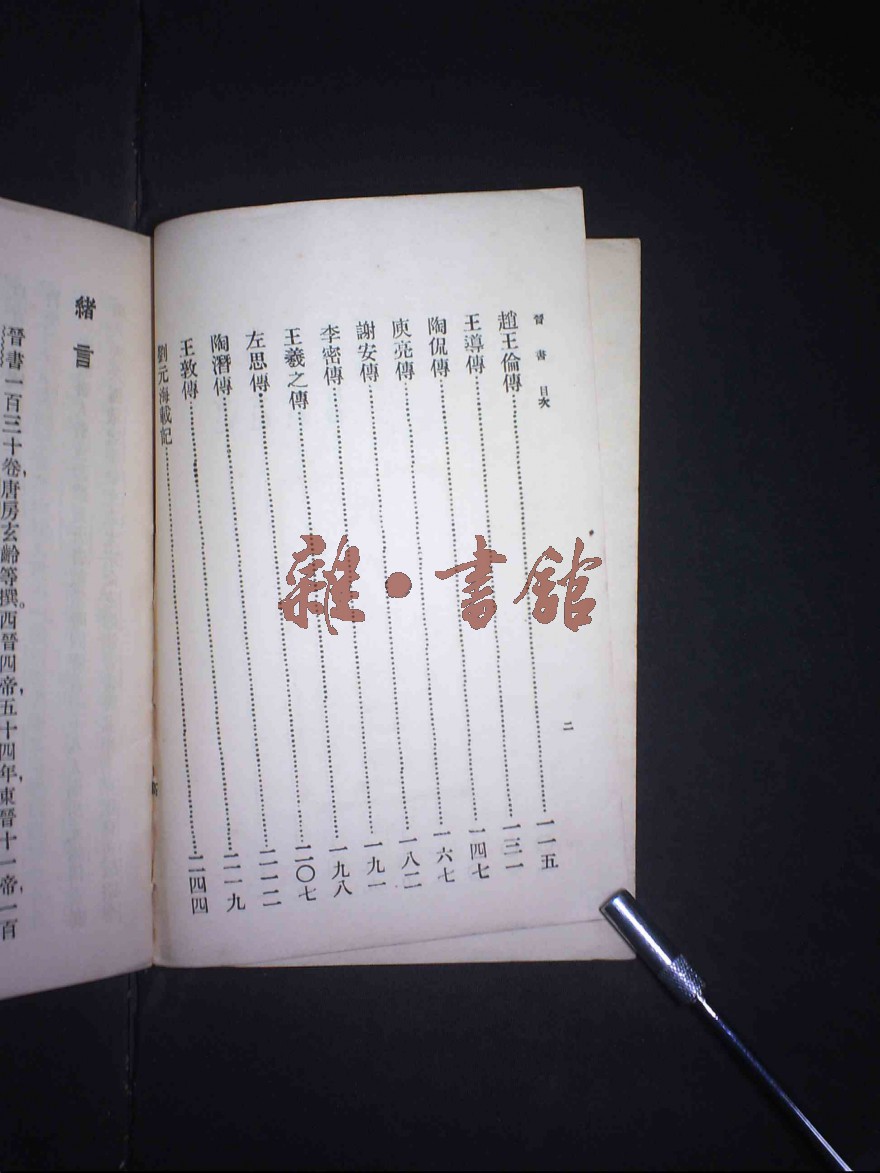 晉書 目次
二
趙王倫傳……一一五
王導傳……一三一
陶侃傳……一四七
庾亮傳……一六七
謝安傳……一八二
李密傳……一九一
王羲之傳……一九八
左思傳……二〇七
陶潛傳……二一二
王敦傳……二一九
劉元海載記……二四四
緒言
晉書一百三十卷,唐房玄齡等撰。西晉四帝,五十四年,東晉十一帝,一百
雜·書館